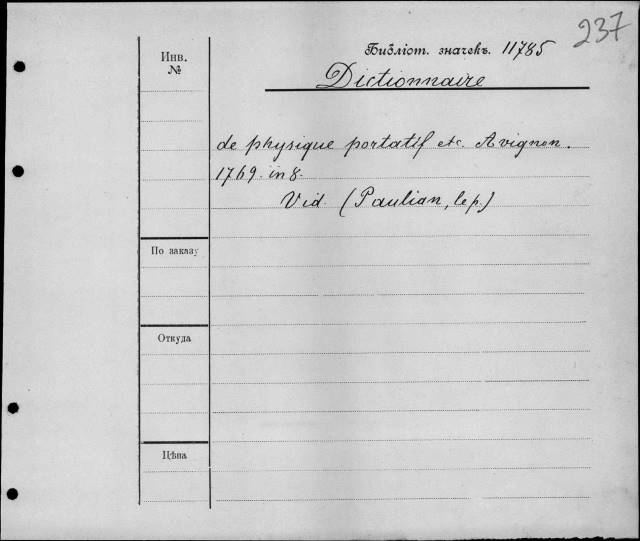 237
Библіот. значекъ. 11785
Инв.
№
Dictionnaire
de physique portatif etc. Avignon.
1769. in 8.
Vid. (Paulian, le p.)
По заказу
Откуда
Цѣна